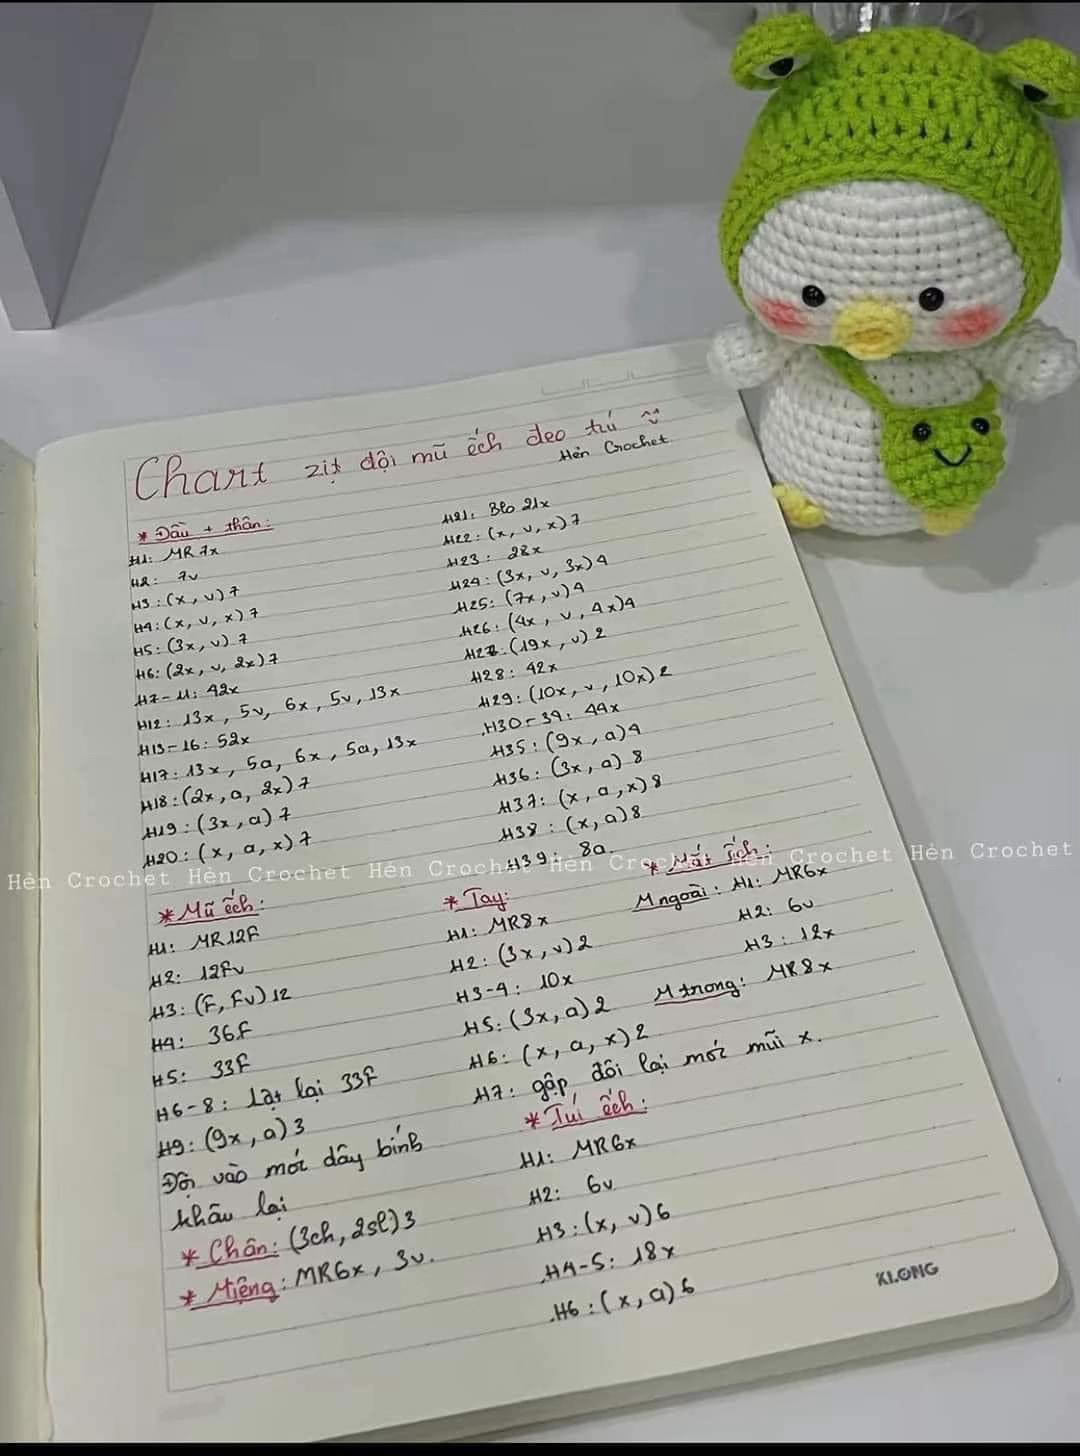 Chart zịt đội mũ ếch đeo túi
Hẻn Crochet
* Đầu + thân:
H1: MR 7x
H2: 7v
H3: (x, v) 7
H4: (x, v, x) 7
H5: (3x, v) 7
H6: (2x, v, 2x) 7
H7-11: 42x
H12: 13x, 5v, 6x, 5v, 13x
H13-16: 52x
H17: 13x, 5a, 6x, 5a, 13x
H18: (2x, a, 2x) 7
H19: (3x, a) 7
H20: (x, a, x) 7
H21: Blo 21x
H22: (x, v, x) 7
H23: 28x
H24: (3x, v, 3x) 4
H25: (7x, v) 4
H26: (4x, v, 4x) 4
H27: (19x, v) 2
H28: 42x
H29: (10x, v, 10x) 2
H30-34: 44x
H35: (9x, a) 4
H36: (3x, a) 8
H37: (x, a, x) 8
H38: (x, a) 8
H39: 8a.
Hẻn Crochet Hẻn Crochet Hẻn Crochet Hẻn Crochet Hẻn Crochet Hẻn Crochet
* Mũ ếch:
H1: MR12F
H2: 12Fv
H3: (F, Fv) 12
H4: 36F
H5: 33F
H6-8: Lật lại 33F
H9: (9x, a) 3
Đội vào móc dây bính
khâu lại
* Chân: (3ch, 2sl) 3
* Miệng: MR6x, 3v.
* Tay:
H1: MR8x
H2: (3x, v) 2
H3-4: 10x
H5: (3x, a) 2
H6: (x, a, x) 2
H7: gập đôi lại móc mũi x.
* Mắt ếch:
M ngoài: H1: MR6x
H2: 6v
H3: 12x
M trong: MR8x
* Túi ếch:
H1: MR6x
H2: 6v
H3: (x, v) 6
H4-5: 18x
H6: (x, a) 6
KLONG